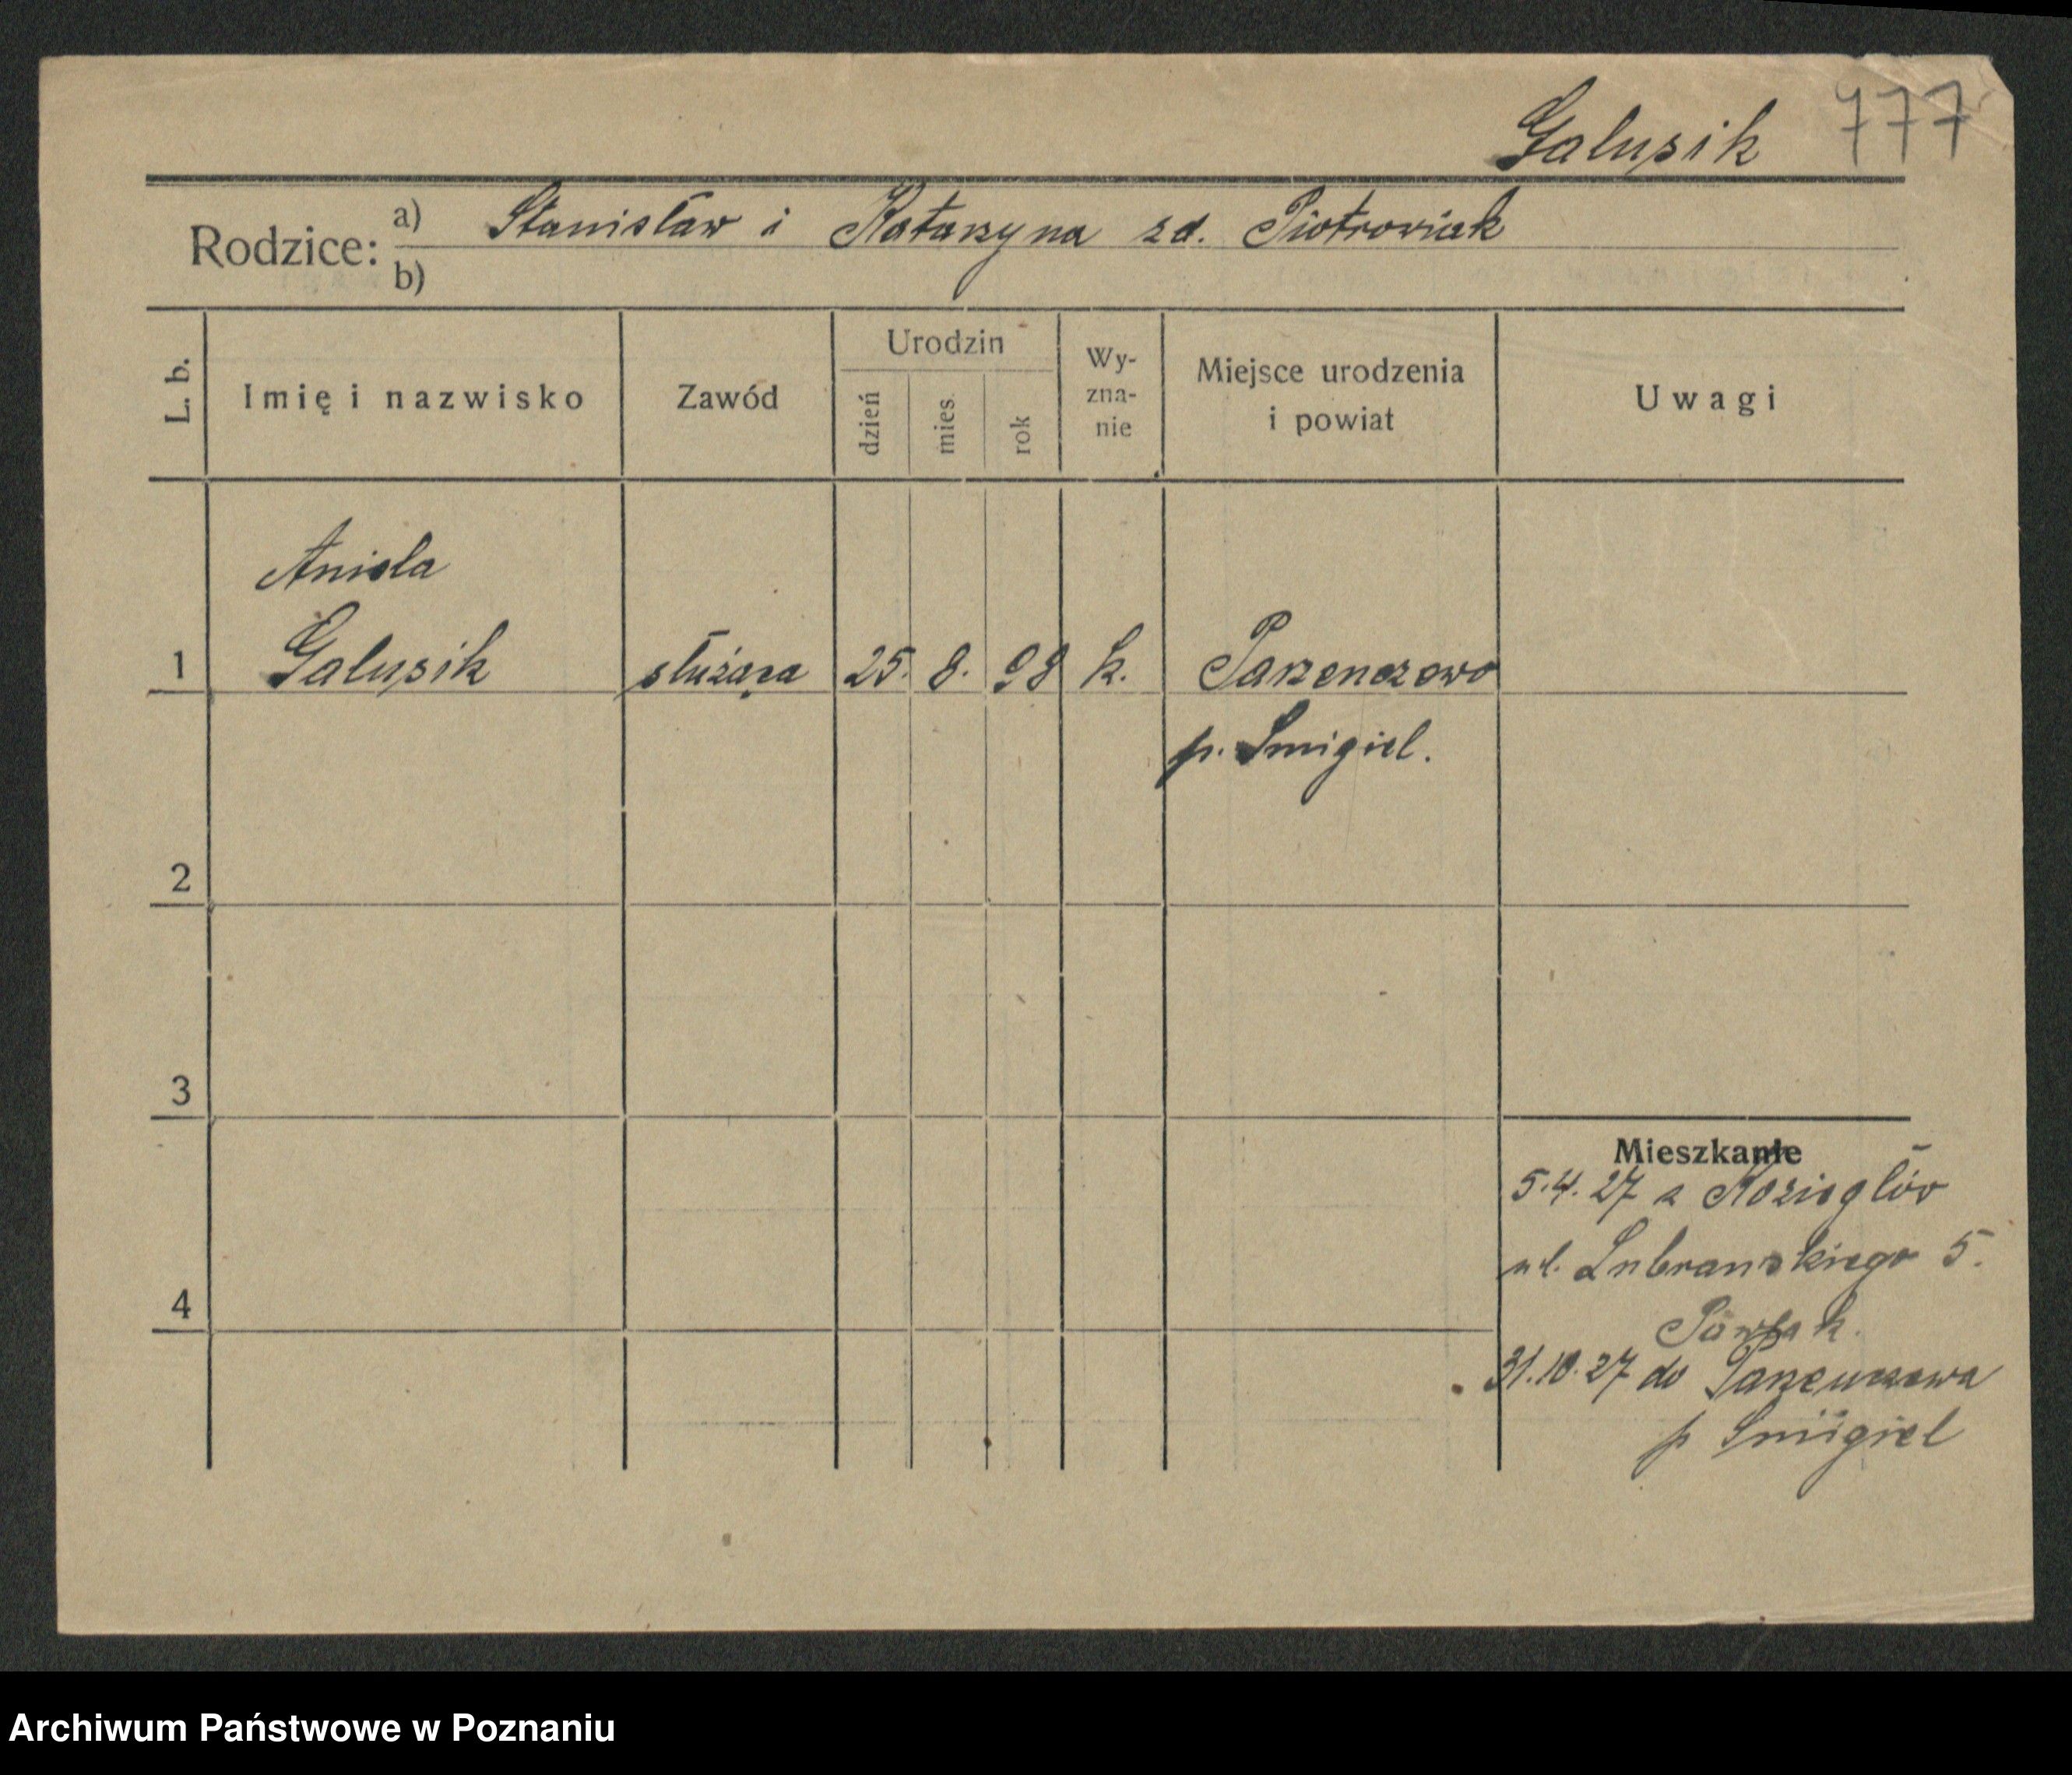 Galusik 777
Rodzice: a) Stanisław i Katarzyna zd. Piotrowiak
b)
L. b. Imię i nazwisko Zawód Urodzin dzień mies. rok Wy-zna-nie Miejsce urodzenia i powiat Uwagi
Aniela
1 Galusik służąca 25. 8. 98 k. Parzenczewo
p. Smigiel.
2
3
Mieszkanie
5.4.27 z Koziegłów
ul. Lubranskiego 5.
4 Pawlak.
31.10.27 do Parzenczewa
p Smigiel
Archiwum Państwowe w Poznaniu